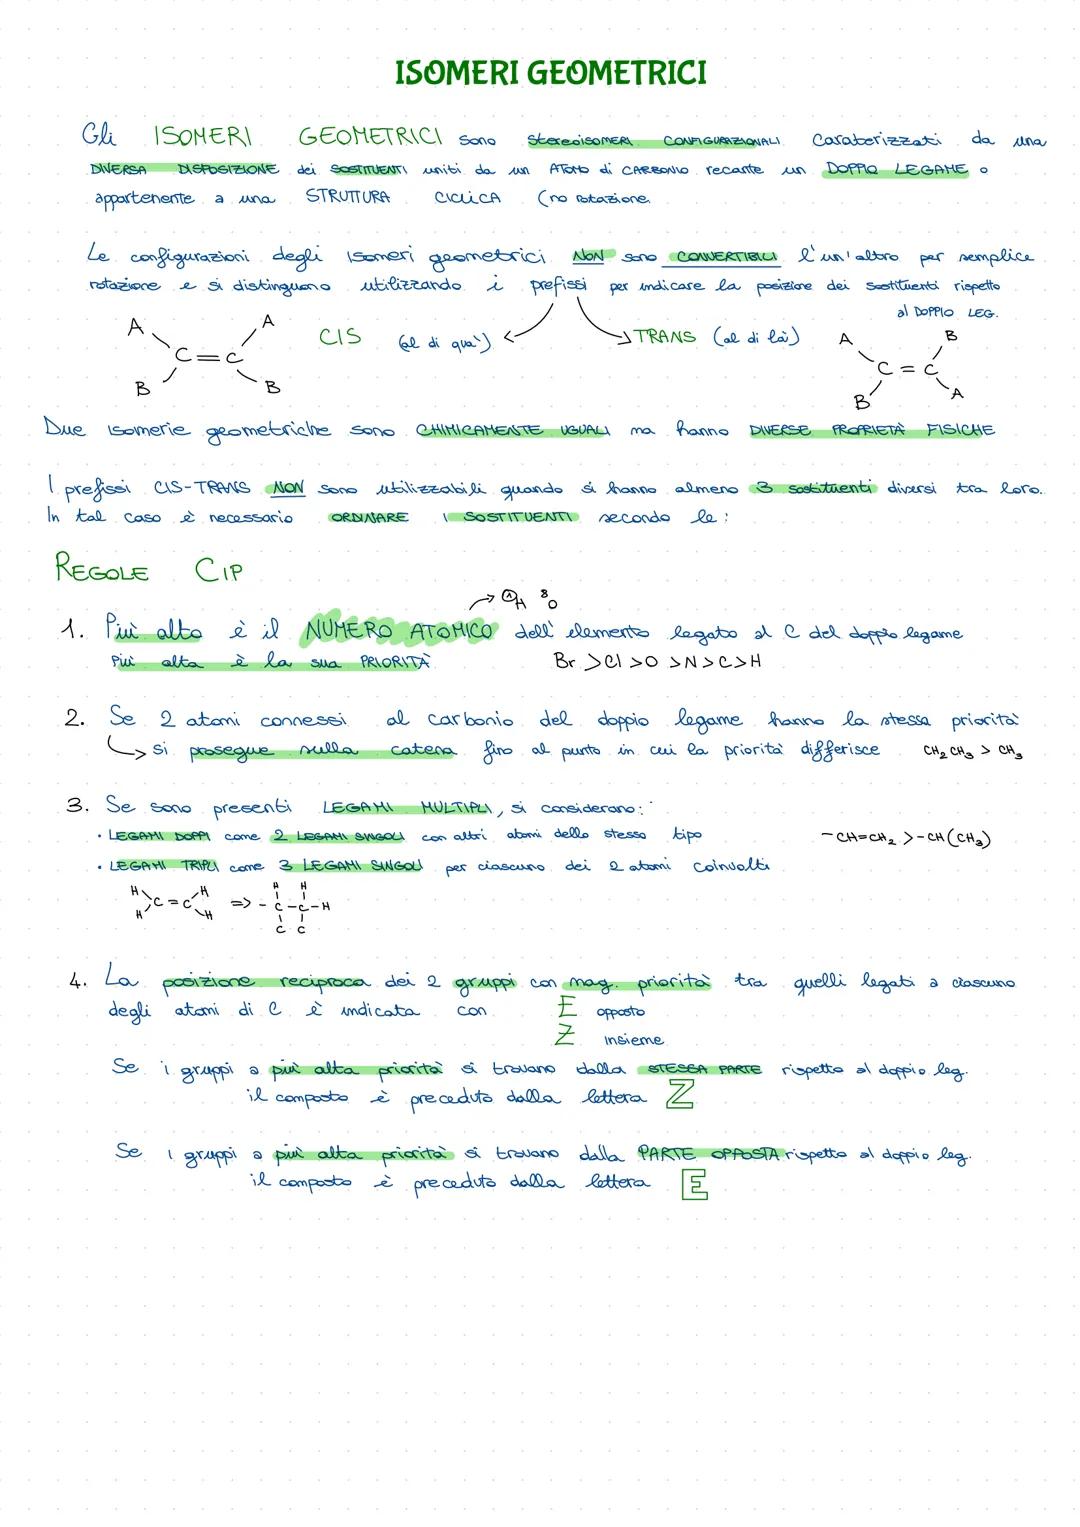 ISOMERI GEOMETRICI
Gli ISOMERI GEOMETRICI sono stereoisomeri CONFIGURAZIONALI Caratterizzati da una
DIVERSA DISPOSIZIONE dei SOSTITUENTI uniti da un ATOMO di CARBONIO recante un DOPPIO LEGAME o
appartenente a una STRUTTURA CICLICA (no rotazione.
Le configurazioni degli isomeri geometrici NON sono CONVERTIBILI l'un'altro per semplice
rotazione e si distinguono utilizzando i prefissi per indicare la posizione dei sostituenti rispetto
al DOPPIO LEG.
A A CIS (al di qua') TRANS (al di là) A B
C=C C=C
B B B A
Due isomerie geometriche sono CHIMICAMENTE UGUALI ma hanno DIVERSE PROPRIETÀ FISICHE
I prefissi CIS-TRANS NON sono utilizzabili quando si hanno almeno 3 sostituenti diversi tra loro.
In tal caso è necessario ORDINARE I SOSTITUENTI secondo le:
REGOLE CIP
→ 1H 8O
1. Piu' alto è il NUMERO ATOMICO dell'elemento legato al C del doppio legame
Piu' alta è la sua PRIORITÀ Br >Cl >O >N>C>H
2. Se 2 atomi connessi al carbonio del doppio legame hanno la stessa priorità
↳ si prosegue sulla catena fino al punto in cui la priorità differisce CH2 CH3 > CH3
3. Se sono presenti LEGAMI MULTIPLI, si considerano:
• LEGAMI DOPPI come 2 LEGAMI SINGOLI con altri atomi dello stesso tipo -CH=CH2 >-CH(CH3)
• LEGAMI TRIPLI come 3 LEGAMI SINGOLI per ciascuno dei 2 atomi coinvolti
H H H H
C=C => -C-C-H
H H C C
4. La posizione reciproca dei 2 gruppi con mag. priorità tra quelli legati a ciascuno
degli atomi di C è indicata con E opposto
Z insieme
Se i gruppi a piu' alta priorità si trovano dalla STESSA PARTE rispetto al doppio leg.
il composto è preceduto dalla lettera Z
Se i gruppi a piu' alta priorità si trovano dalla PARTE OPPOSTA rispetto al doppio leg.
il composto è preceduto dalla lettera E